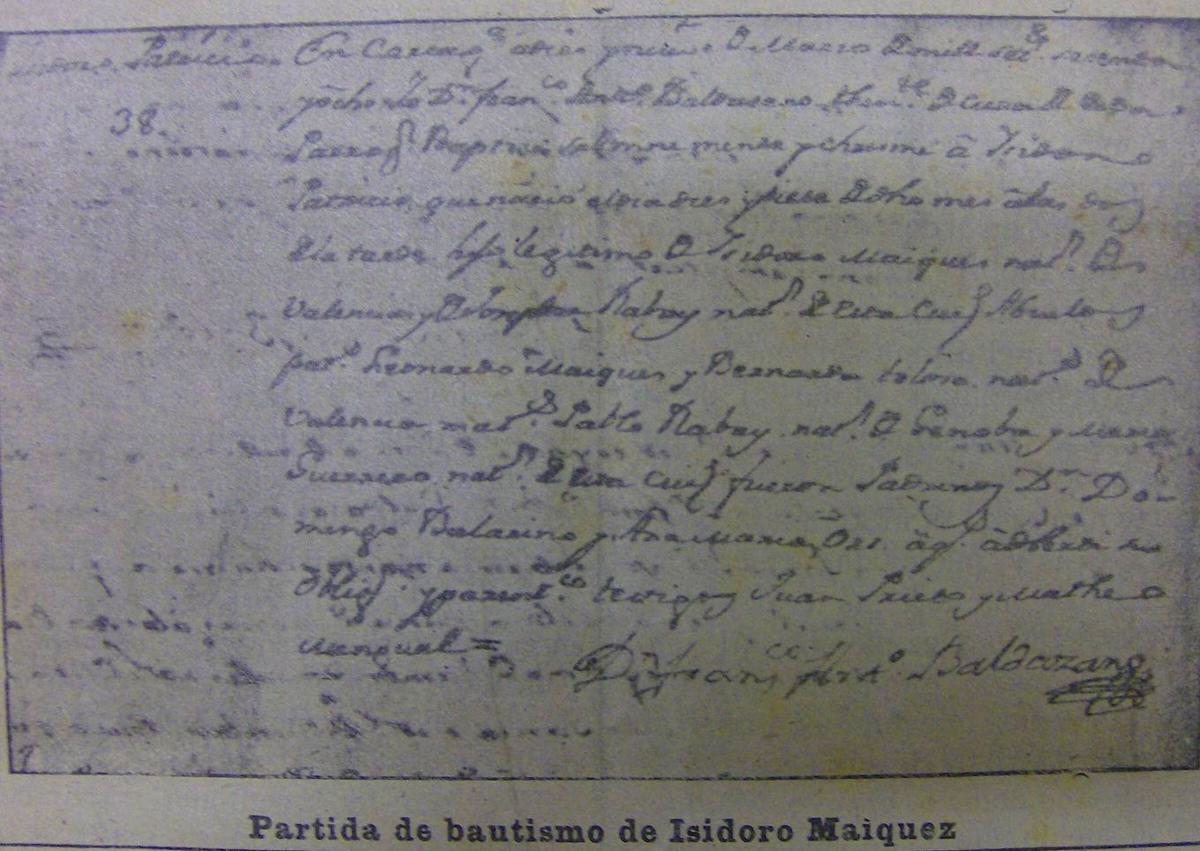 Isidoro Patricio En Cartag.ª a diez y nueve D Marzo D mill set.s sesenta
38.
y ocho Yo D.n Fran.co Ant.o Baldasano then.te D Cura
Parroq Baptizè solemnemente y chrisme â Isidoro
Patricio, que naciò el dia diez y siete D dho mes â las dos
D la tarde hijo legitimo D Isidoro Maiques nat.l D
Valencia y D Rabay nat.l D esta Ciu.d Abuelos
pat.s Leonardo Maiques y Bernarda tolosa nat.s D
Valencia mat.s Pablo Rabay nat.l D Genoba y Maria
Guerrero nat.l D esta Ciu.d fueron Padrinos D.n Do-
mingo Balarino y Ana Maria âq.s âdverti su
Oblig.n y parent.co testigos Juan Prieto y Matheo
Mengual =
D.n Fran.co Ant.o Baldazano
Partida de bautismo de Isidoro Maiquez